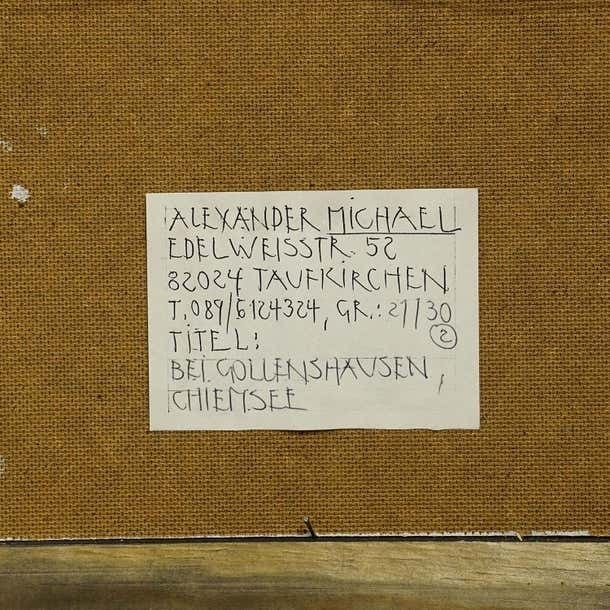 ALEXANDER MICHAEL
EDELWEISSTR. 52
82024 TAUFKIRCHEN.
T. 089/6124324, GR.: 21/30
TITEL: 2
BEI GOLLENSHAUSEN,
CHIEMSEE